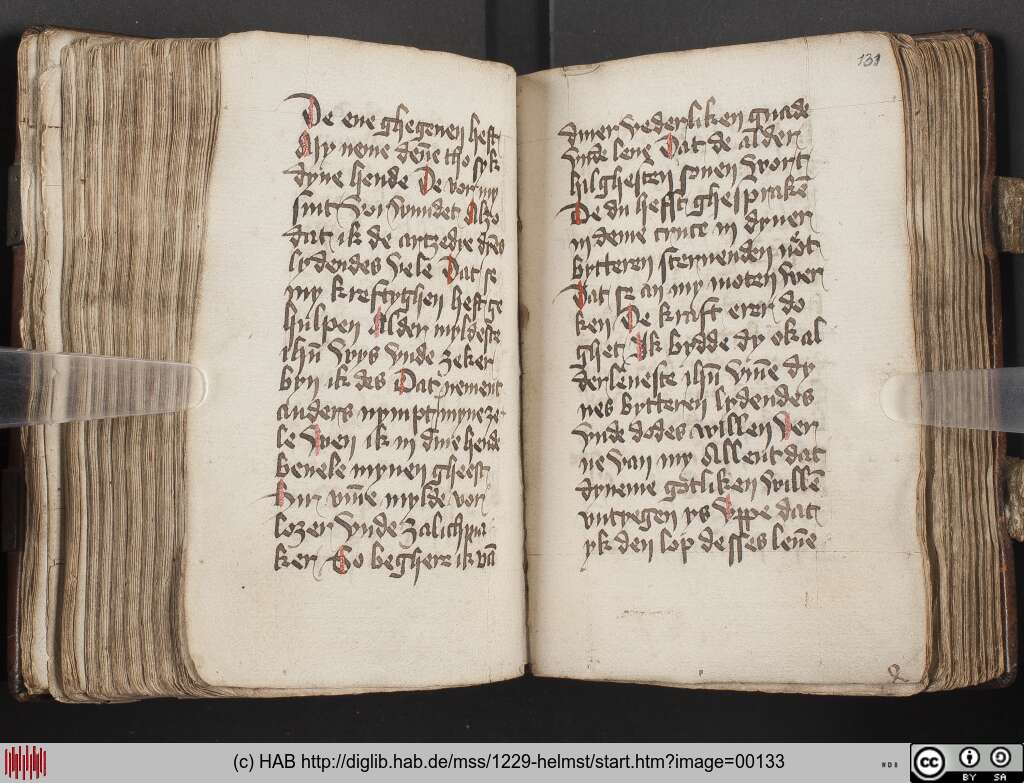 De ene ghegeuen heft
Nu neme dene tho syk
dyne hende De vor my
sint vor wundet Alzo
dat ik de artzedye dȳs
lydendes vele Dat se
my kreftyghen heft ge
hulpen Alder myldeste
ihū wys vnde zeker
byn ik des Dat nement
anders nympt myne ze
le Wen ik in dine hende
beuele mynen gheest
Dur vm̄e mylde vor
lozer vnde zalichma
ker So beghere ik vā
131
dyner vederliken gnade
vnde leue Dat de alder
hilghesten souen wort
De du hefst ghesprakē
in deme cruce in dyner
bytteren steruenden not
Dat se an my moten wer
ken De kraft erer do
ghet Ik bydde dy ok al
derleueste ihū vm̄e dy
nes bytteren lydendes
vnde dodes willen Ver
ne van my Allent dat
dyneme gotliken willē
vntregen ys Vppe dat
yk den lop desses leuēe
(c) HAB http://diglib.hab.de/mss/1229-helmst/start.htm?image=00133
WDB
cc
BY SA